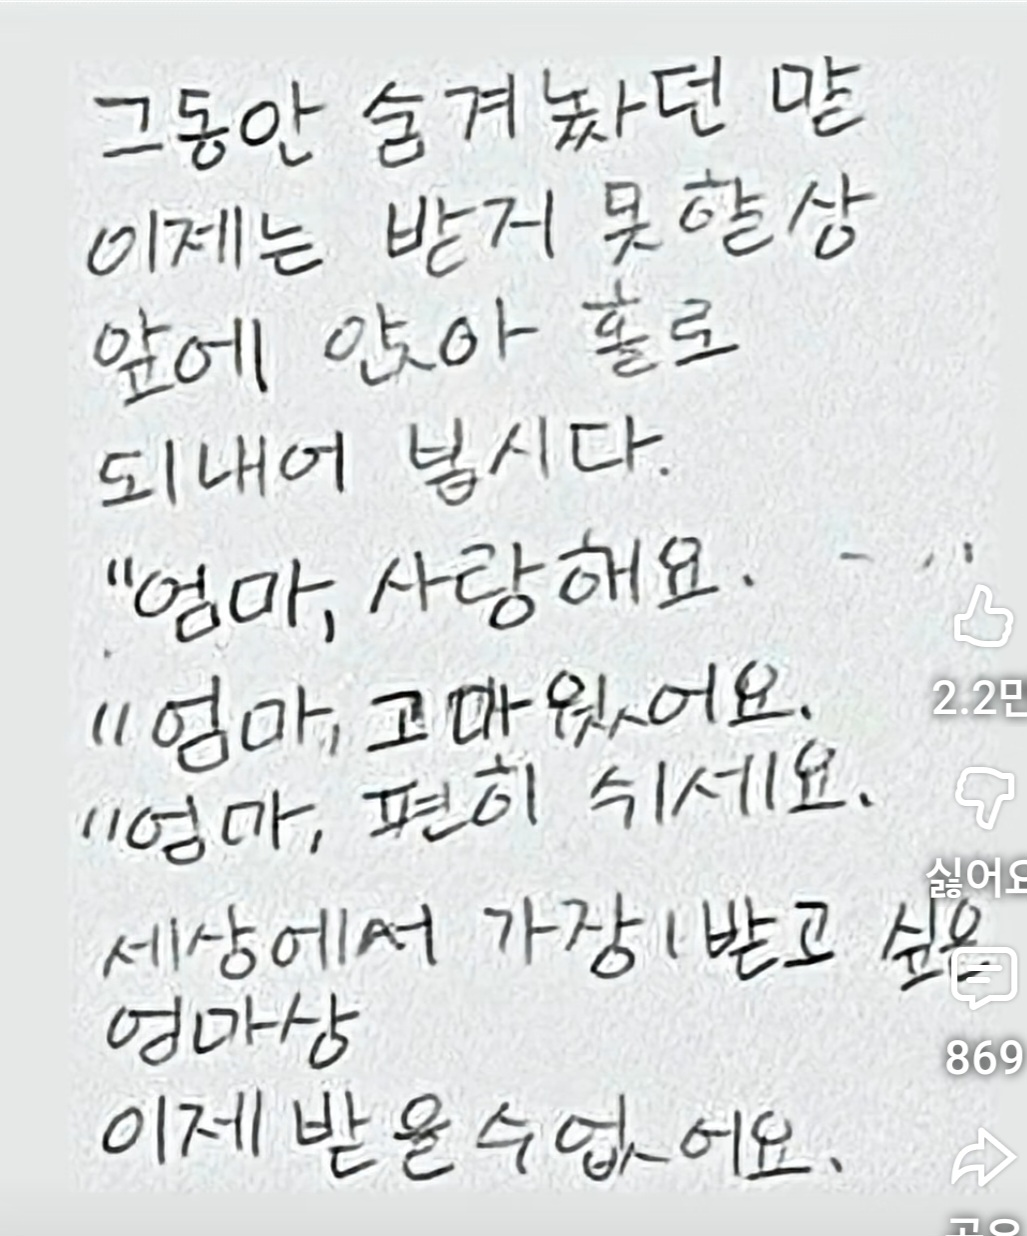 그동안 숨겨놨던 말
이제는 받지 못할 상
앞에 앉아 홀로
되내어 봅시다.
"엄마, 사랑해요.
"엄마, 고마웠어요.
"엄마, 편히 쉬세요.
세상에서 가장 받고 싶은
엄마상
이제 받을 수 없어요.
2.2만
싫어요
869